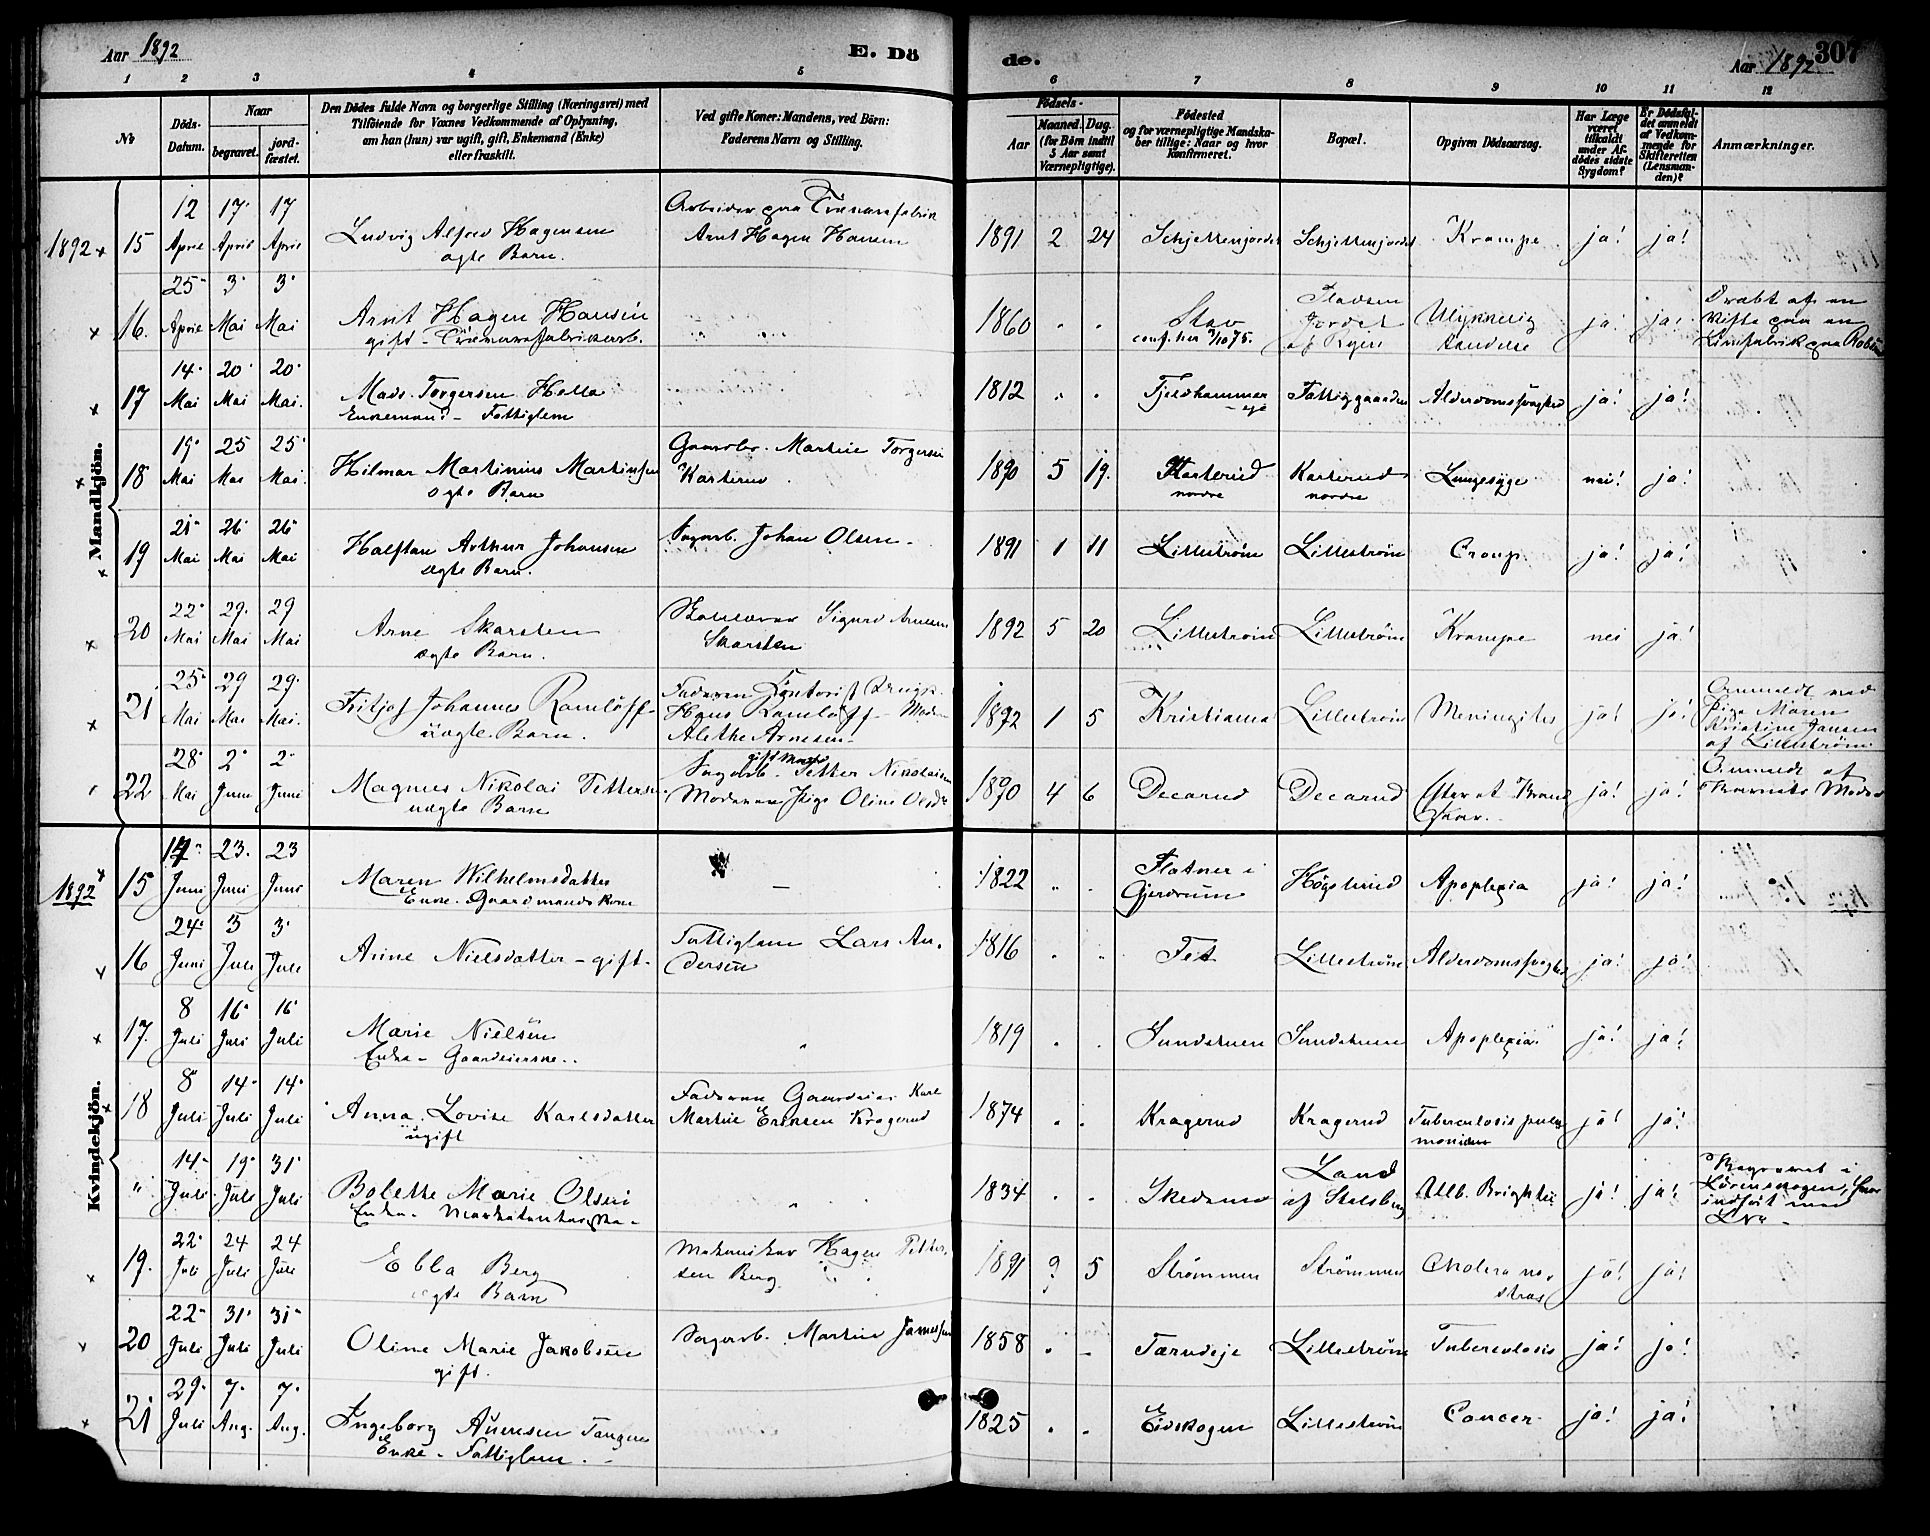 Aar 1892
E. Dö
de.
Aar 1892
307
1 2 3 4 5 6 7 8 9 10 11 12
No
Döds-
Datum.
Naar
begravet.
jord-
fæstet.
Den Dödes fulde Navn og borgerlige Stilling (Næringsvei) med
Tilföiende for Voxnes Vedkommende af Oplysning,
om han (hun) var ugift, gift, Enkemand (Enke)
eller fraskilt.
Ved gifte Koner: Mandens, ved Börn:
Faderens Navn og Stilling.
Födsels-
Aar
Maaned. Dag.
(for Börn indtil
5 Aar samt
Værnepligtige).
Födested
og for værnepligtige Mandska-
ber tillige: Naar og hvor
konfirmeret.
Bopæl.
Opgiven Dödsaarsag.
Har Læge
været
tilkaldt
under Af-
dödes sidste
Sygdom?
Er Dödsfal-
det anmeldt
af Vedkom-
mende for
Skifteretten
(Lensman-
den)?
Anmærkninger.
Mandkjön.
1892 15 12 April 17 April 17 April
Ludvig Alfred Hagensen
ægte Barn.
Arbeider paa Trævarefabrik
Arnt Hagen Hansen
1891 2 24 Schjettenjordet Schjettenjordet Krampe ja! ja!
16. 25 April 3 Mai 3 Mai
Arnt Hagen Hansen
gift - Trævarefabrikarb.
1860 " " Stav
conf. her 3/10 75.
Jordet
Ulykkelig
Hændelse
ja! ja!
Dræbt af en
Vifte paa en
Limfabrik paa
17 14 Mai 20 Mai 20 Mai.
Mads Torgersen Holla
Enkemand - Fattiglem
1812 " " Fjeldhammer
eje
Fattiggaarden Alderdomssvaghed ja! ja!
18 19 Mai 25 Mai 25 Mai.
Hilmar Martinius Martinsen
ægte Barn
Martin Torgersen
Karterud
1890 5 19. Karterud
nordre
Karterud
nordre
Lungesyge nei! ja!
19 21 Mai 26 Mai 26 Mai
Halfdan Arthur Johansen
ægte Barn.
Sagarb. Johan Olsen -
1891 1 11 Lillestrøm Lillestrøm Croup. ja! ja!
20 22 Mai 29. Mai 29 Mai
Arne Skarsten
ægte Barn.
Sigurd Arnesen
Skarsten
1892 5 20 Lillestrøm Lillestrøm Krampe nei ja!
21 25 Mai 29 Mai 29 Mai.
Fritjof Johannes Ramløff
uægte Barn.
Faderen Kontorist
Hans Ramløff - Moder
Alethe Arnesen
1892 1 5 Kristiania Lillestrøm Meningitis ja! ja!
Anmeldt ved
Pige Maren
Kristine Jansen
af Lillestrøm
22 28 Mai 2 Juni 2 Juni
Magnus Nikolai Pettersen
uægte Barn
gift
Sagarb. Petter Nikolaisen
Moderen Pige Oline
1890 4 6 Decarud Decarud
ja! ja!
Anmeldt af
Barnets Moder
Kvindekjön.
1892 15 17 Juni 23. Juni 23 Juni
Maren Wilhelmsdatter
Enke. Gaardmandskone
1822 " " Flatner i
Gjerdrum
Apoplexia ja! ja!
16 24 Juni 3 Juli 3 Juli
Anne Nielsdatter - gift.
Fattiglem Lars An-
dersen
1816 " " Fet Lillestrøm Alderdomssvaghed ja! ja!
17. 8 Juli 16 Juli 16 Juli
Marie Nielsen
Enke - Gaardeierske.
1819 " " Apoplexia ja! ja!
18 8 Juli 14 Juli 14 Juli
Anna Lovise Karlsdatter
ugift
Faderen Gaardeier Karl
Martin Eriksen Kragerud
1874 " " Kragerud Kragerud Tuberculosis pul-
monum
ja! ja!
" 14 Juli 19 Juli 31 Juli
Bolette Marie Olsen
Enke -
1834 " " Skedsmo Land
af Stalsberg
Mb. Brightii ja! ja!
Begravet i
Lörenskogen, her
indført uden
No -
19. 22 Juli 24 Juli 24 Juli
Ebba Berg
ægte Barn
Mekaniker Hagen Petter-
sen Berg
1891 9 5 Strømmen Strømmen Cholera no-
stras
ja! ja!
20 22 Juli 31 Juli 31 Juli
Oline Marie Jakobsen
gift.
Sagarb. Martin
1858 " " Tærudeje Lillestrøm Tuberculosis ja! ja!
21 29 Juli 7. Aug. 7. Aug.
Ingeborg Auensen Tangen
Enke - Fattiglem.
1825 " " Eidskogen Lillestrøm Cancer ja! ja!